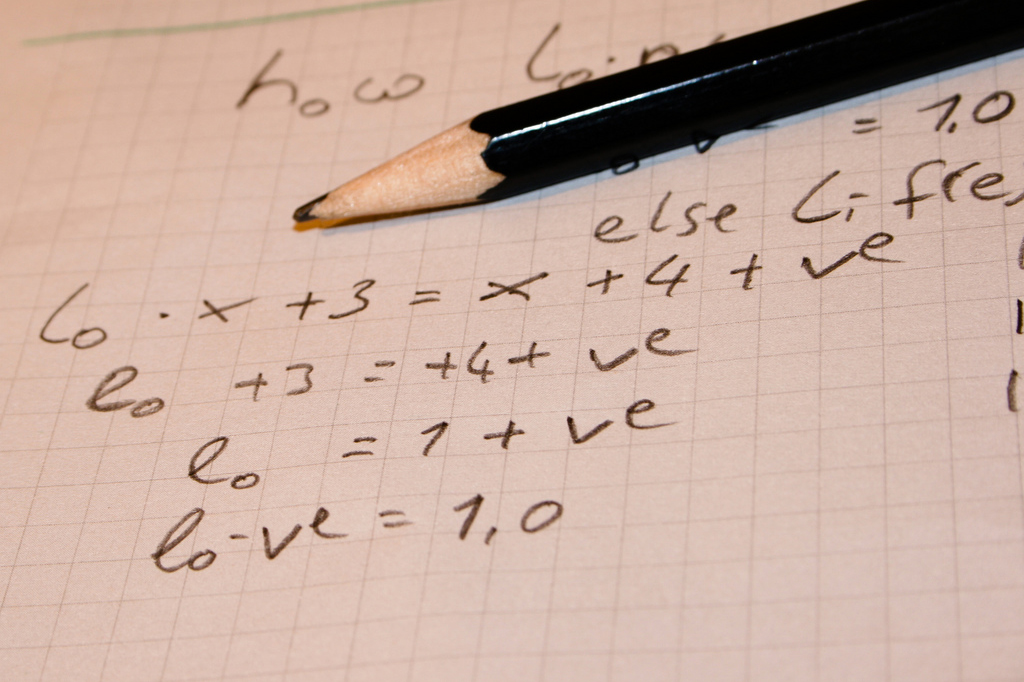 how
= 1.0
else
lo · x + 3 = x + 4 + ve
lo + 3 = + 4 + ve
lo = 1 + ve
lo - ve = 1,0